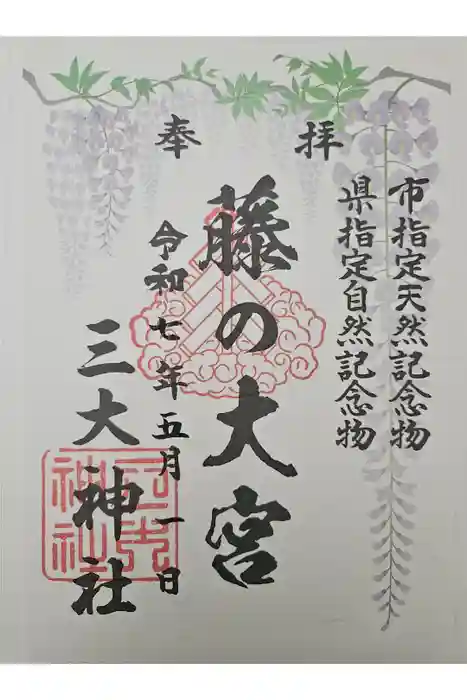 奉拝
市指定天然記念物
県指定自然記念物
藤の大宮
令和七年五月一日
三大神社
三大神社